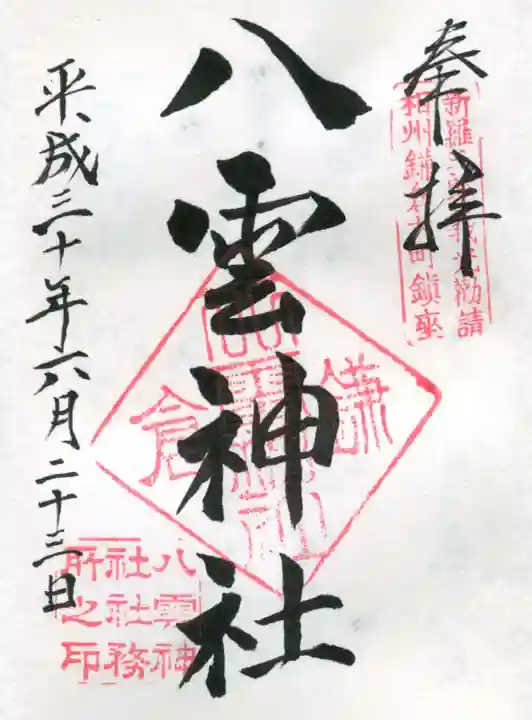 奉拝
新羅三郎義光勧請
相州鎌倉大町鎮座
八雲神社
鎌倉
八雲神社
八雲神
社社務
所之印
平成三十年六月二十三日